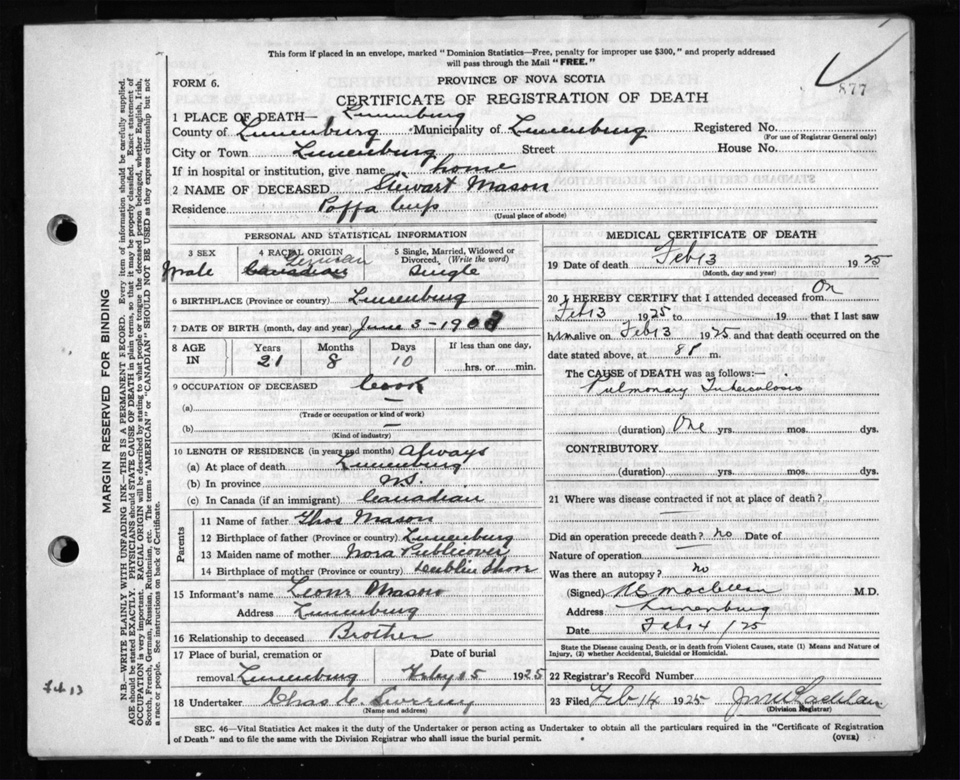 This form if placed in an envelope, marked "Dominion Statistics—Free, penalty for improper use $300," and properly addressed
will pass through the Mail "FREE."
877
FORM 6.
PROVINCE OF NOVA SCOTIA
CERTIFICATE OF REGISTRATION OF DEATH
1 PLACE OF DEATH— Lunenburg
County of Lunenburg Municipality of Lunenburg Registered No.
(For use of Registrar General only)
City or Town Lunenburg Street House No.
If in hospital or institution, give name home
2 NAME OF DECEASED Stewart Mason
Residence
(Usual place of abode)
PERSONAL AND STATISTICAL INFORMATION
3 SEX 4 RACIAL ORIGIN 5 Single, Married, Widowed or
Divorced, (Write the word)
German
Male Canadian Single
6 BIRTHPLACE (Province or country) Lunenburg
7 DATE OF BIRTH (month, day and year) June 3-1903
8 AGE IN Years Months Days If less than one day,
21 8 10 hrs. or min.
9 OCCUPATION OF DECEASED Cook
(a) —
(Trade or occupation or kind of work)
(b) —
(Kind of industry)
10 LENGTH OF RESIDENCE (in years and months) Always
(a) At place of death Lunenburg
(b) In province N.S.
(c) In Canada (if an immigrant) Canadian
Parents
11 Name of father Thos Mason
12 Birthplace of father (Province or country) Lunenburg
13 Maiden name of mother Nora Publicover
14 Birthplace of mother (Province or country) Dublin Shore
15 Informant's name Mason
Address Lunenburg
16 Relationship to deceased Brother
17 Place of burial, cremation or Date of burial
removal Lunenburg Feby 15 1925
18 Undertaker Chas
(Name and address)
MEDICAL CERTIFICATE OF DEATH
19 Date of death Feb 13 1925
(Month, day and year)
20 I HEREBY CERTIFY that I attended deceased from On
Feb 13 1925 to 19 that I last saw
him alive on Feb 13 1925 and that death occurred on the
date stated above, at 8 P m.
The CAUSE of DEATH was as follows:—
Pulmonary Tuberculosis
(duration) One yrs. mos. dys.
CONTRIBUTORY
(duration) yrs. mos. dys.
21 Where was disease contracted if not at place of death?
—
Did an operation precede death? no Date of
Nature of operation —
Was there an autopsy? no
(Signed) M.D.
Address Lunenburg
Date Feb 14 /25
State the Disease causing Death, or in death from Violent Causes, state (1) Means and Nature of
Injury, (2) whether Accidental, Suicidal or Homicidal.
22 Registrar's Record Number
23 Filed Feb 14 1925
(Division Registrar)
SEC. 46—Vital Statistics Act makes it the duty of the Undertaker or person acting as Undertaker to obtain all the particulars required in the "Certificate of Registration
of Death" and to file the same with the Division Registrar who shall issue the burial permit. (OVER)
MARGIN RESERVED FOR BINDING
N.B.—WRITE PLAINLY WITH UNFADING INK—THIS IS A PERMANENT RECORD. Every item of information should be carefully supplied.
AGE should be stated EXACTLY. PHYSICIANS should STATE CAUSE OF DEATH in plain terms, so that it may be properly classified. Exact statement of
OCCUPATION is very important. RACIAL ORIGIN will be described by stating to what people or tongue the deceased person belonged, whether English, Irish,
Scotch, French, German, Russian, Ruthenian, etc. The terms "AMERICAN" or "CANADIAN" SHOULD NOT BE USED as they express citizenship but not
a race or people. See instructions on back of Certificate.
Feb. 13